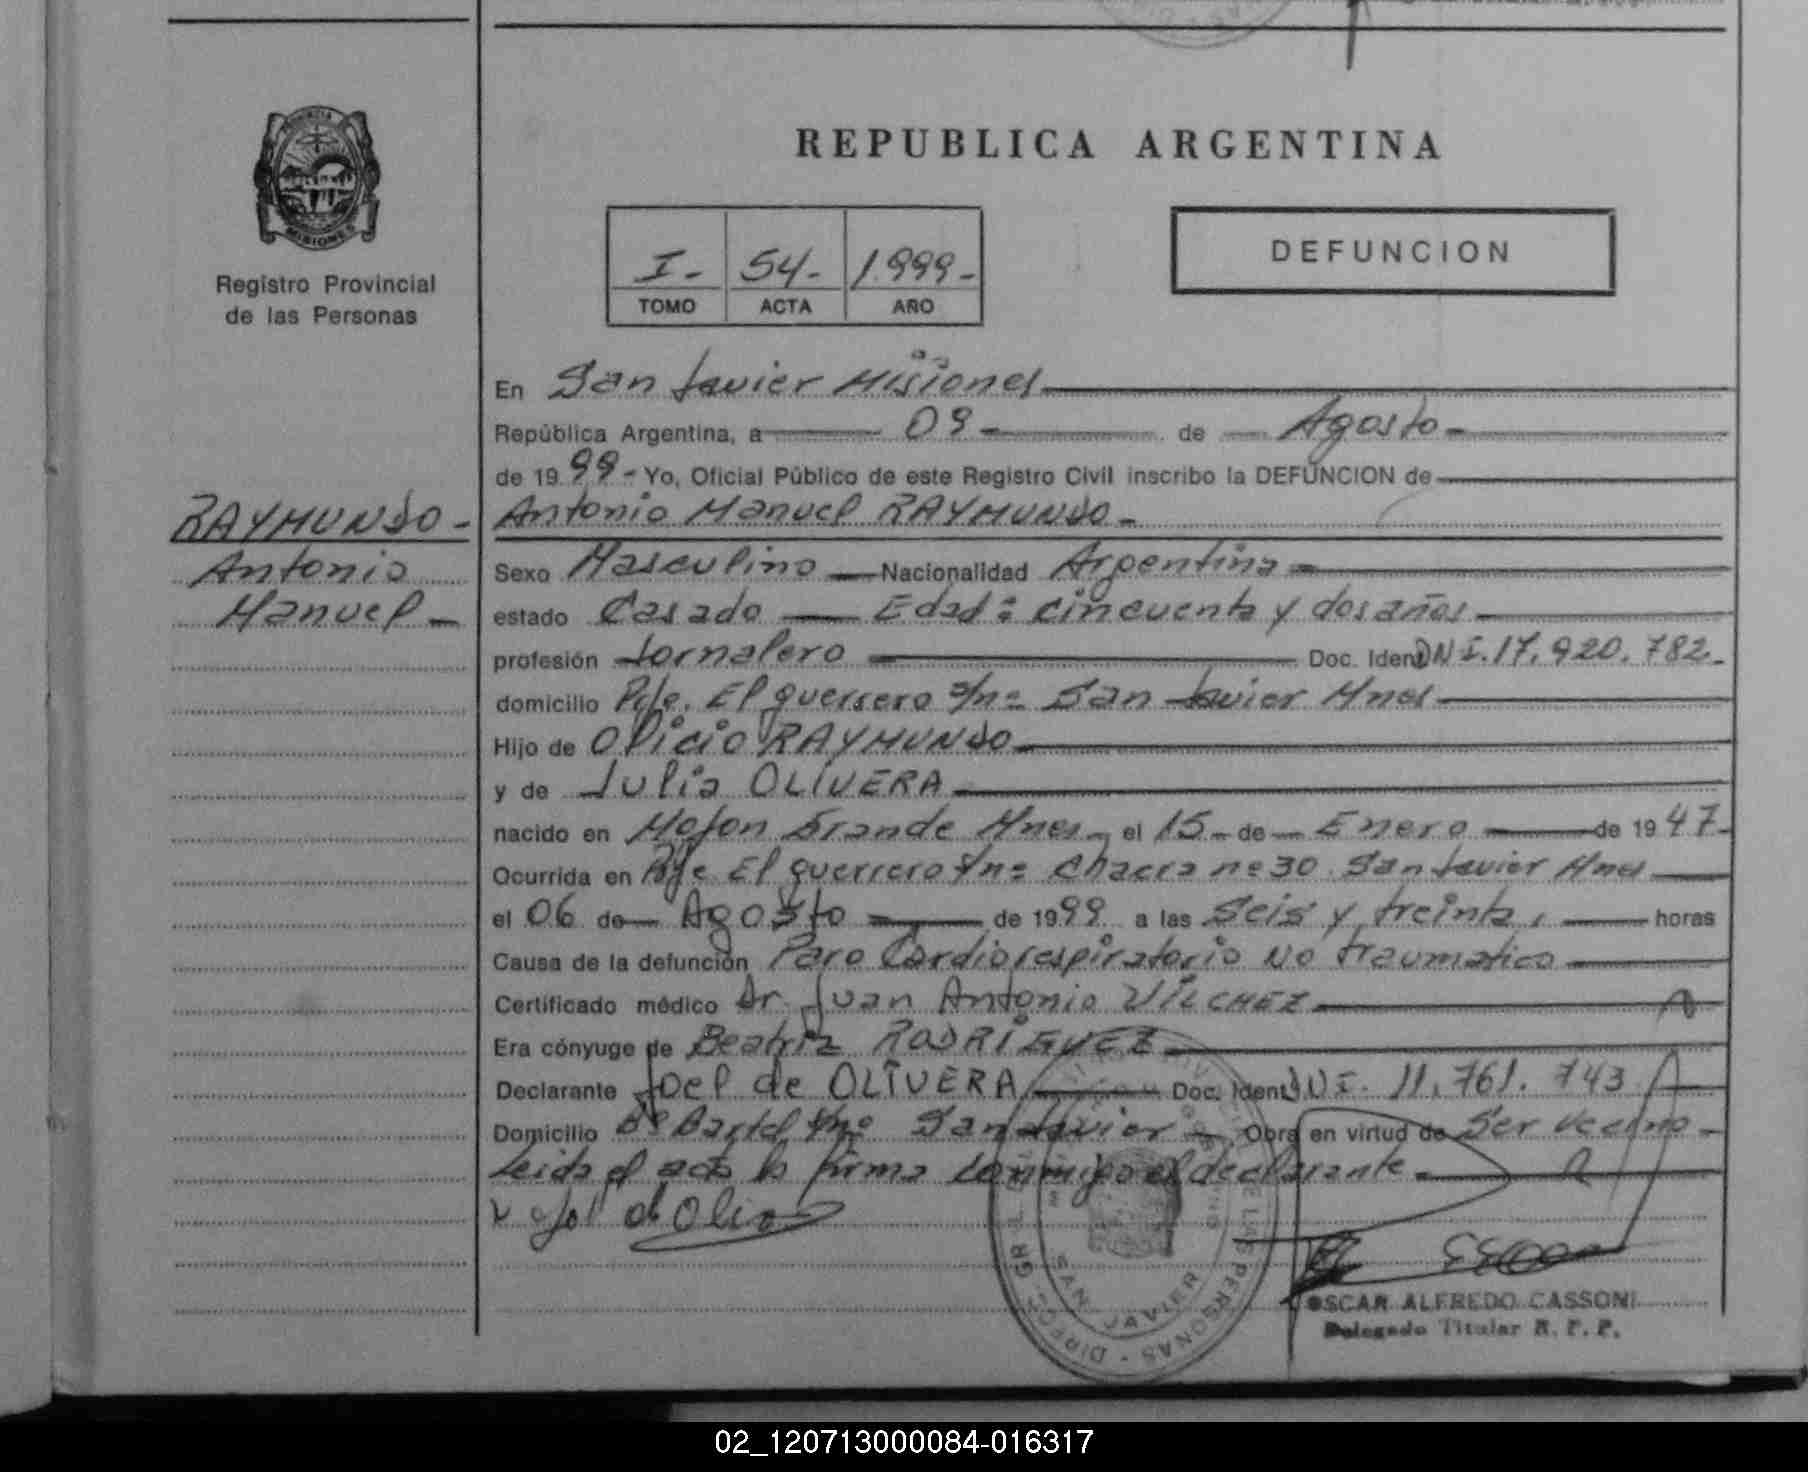 PROVINCIA
MISIONES
Registro Provincial
de las Personas
REPUBLICA ARGENTINA
I- 54- 1.999-
TOMO ACTA AÑO
DEFUNCION
En San Javier Misiones
República Argentina, a 09 - de Agosto -
de 1999 - Yo, Oficial Público de este Registro Civil inscribo la DEFUNCION de
RAYMUNDO -
Antonio
Manuel -
Antonio Manuel RAYMUNDO -
Sexo Masculino Nacionalidad Argentina
estado Casado Edad: cincuenta y dos años
profesión Jornalero Doc. Ident DNI. 17.920.782.
domicilio Pje. El guerrero s/nº San Javier Mnes
Hijo de Olicio RAYMUNDO
y de Julia OLIVERA
nacido en Mojon Grande Mnes - el 15 - de Enero de 1947 -
Ocurrida en Pje El guerrero s/nº Chacra nº 30 San Javier Mnes
el 06 de Agosto de 1999 a las Seis y treinta, horas
Causa de la defunción Paro Cardiorespiratorio No traumatico
Certificado médico Dr. Juan Antonio VILCHEZ
Era cónyuge de Beatriz RODRIGUEZ
Declarante Joel de OLIVERA Doc. Ident DNI. 11.761.743
Domicilio Bº s/nº San Javier - Obra en virtud de Ser vecino -
Leida el acta la firma conmigo el declarante -
SAN JAVIER
DE LAS PERSONAS
OSCAR ALFREDO CASSONI
Delegado Titular R. P. P.
02_120713000084-016317